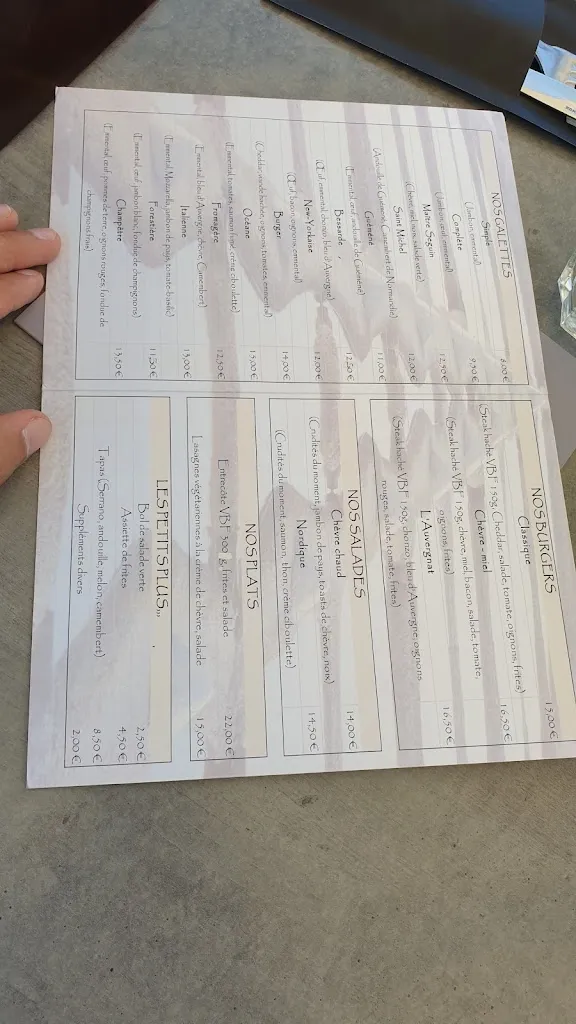 NOS GALETTES
Simple 8,00 €
(Jambon, emmental)
Complète 9,50 €
(Jambon, œuf, emmental)
Maître Seguin 12,50 €
(Chèvre, miel, noix, salade verte)
Saint Michel 12,00 €
(Andouille de Guémené, Camembert de Normandie)
Guémené 11,00 €
(Emmental, œuf, andouille de Guémené)
Bessarde 12,50 €
(Œuf, emmental, chorizo, bleu d'Auvergne)
New-Yorkaine 12,00 €
(Œuf, bacon, oignons, emmental)
Burger 14,00 €
(Cheddar, viande hachée, oignons, tomates, emmental)
Océane 13,00 €
(Emmental, tomates, saumon fumé, crème ciboulette)
Fromagère 12,50 €
(Emmental, bleu d'Auvergne, chèvre, Camembert)
Italienne 13,00 €
(Emmental, Mozzarella, jambon de pays, tomate-basilic)
Forestière 11,50 €
(Emmental, œuf, jambon blanc, fondue de champignons)
Champêtre 13,50 €
(Emmental, œuf, pommes de terre, oignons rouges, fondue de
champignons frais)
NOS BURGERS
Classique 15,00 €
(Steak haché VBF 150g, Cheddar, salade, tomate, oignons, frites)
Chèvre - miel 16,50 €
(Steak haché VBF 150g, chèvre, miel, bacon, salade, tomate,
oignons, frites)
L'Auvergnat 16,50 €
(Steak haché VBF 150g, chorizo, bleu d'Auvergne, oignons
rouges, salade, tomate, frites)
NOS SALADES
Chèvre chaud 14,00 €
(Crudités du moment, jambon de pays, toasts de chèvre, noix)
Nordique 14,50 €
(Crudités du moment, saumon, thon, crème ciboulette)
NOS PLATS
Entrecôte VBF 300 g, frites et salade 22,00 €
Lasagnes végétariennes à la crème de chèvre, salade 15,00 €
LES PETITS PLUS...
Bol de salade verte 2,50 €
Assiette de frites 4,50 €
Tapas (Serrano, andouille, melon, camembert) 8,50 €
Suppléments divers 2,00 €